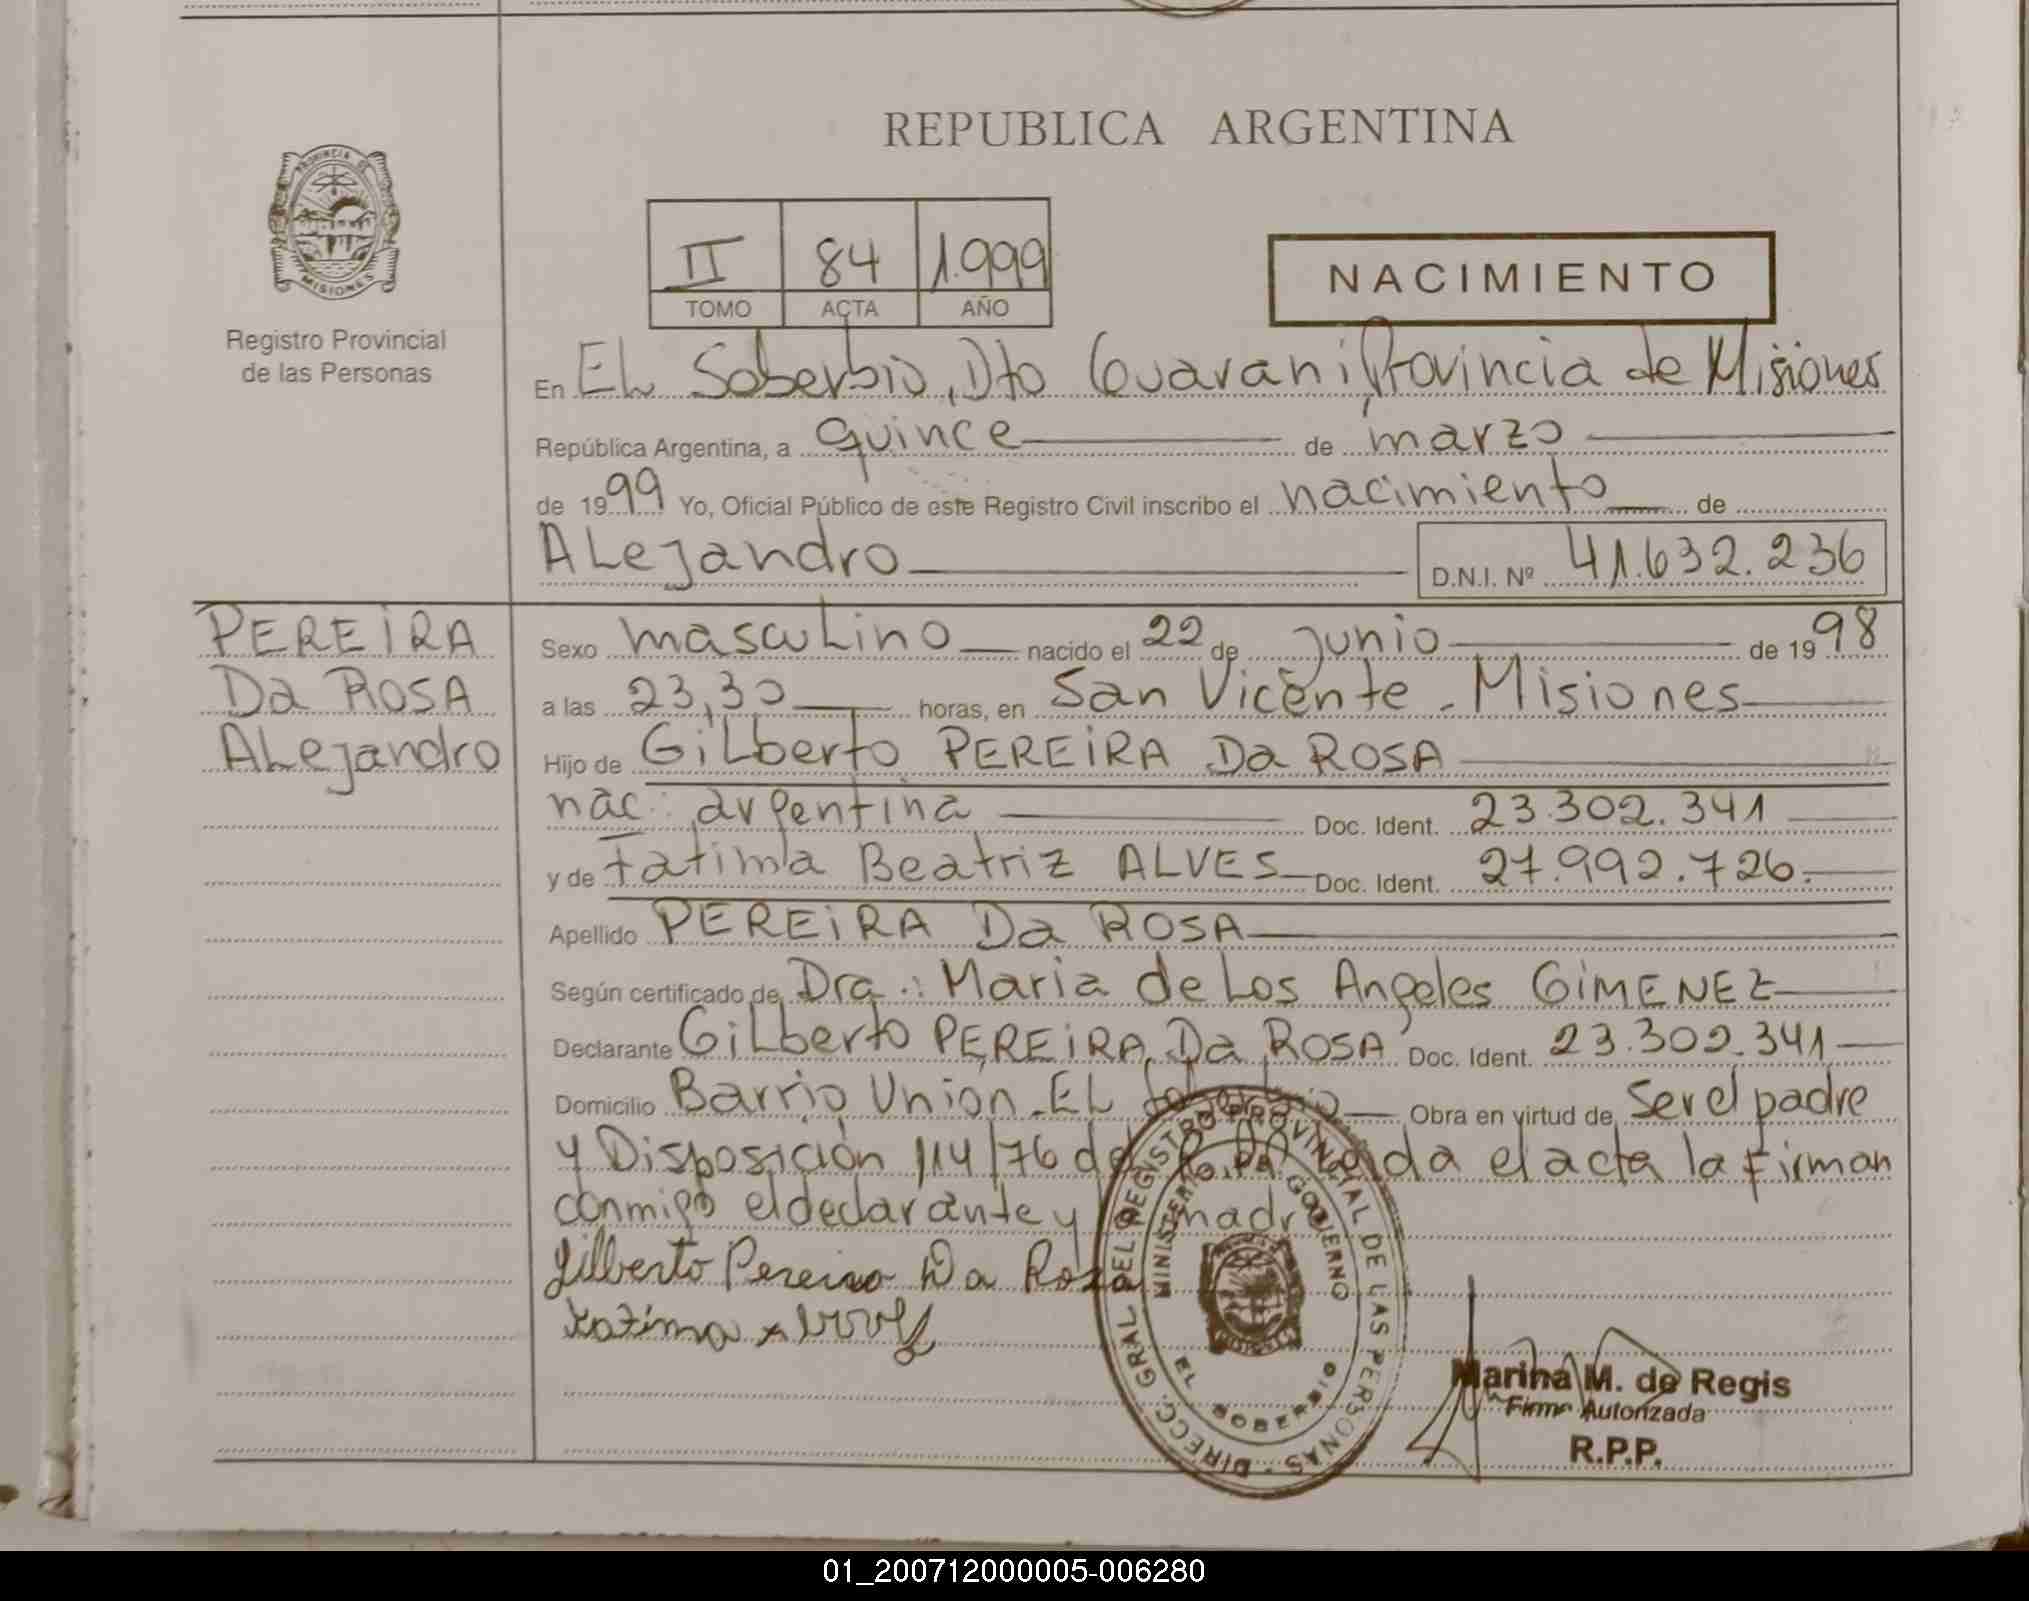 REPUBLICA ARGENTINA
PROVINCIA DE MISIONES
Registro Provincial
de las Personas
II 84 1.999
TOMO ACTA AÑO
NACIMIENTO
En EL Soberbio, Dto Guarani, Provincia de Misiones
República Argentina, a quince de marzo
de 1999 Yo, Oficial Público de este Registro Civil inscribo el nacimiento de
ALejandro D.N.I. Nº 41.632.236
PEREIRA
Da ROSA
ALejandro
Sexo mascuLino nacido el 22 de junio de 1998
a las 23,30 horas, en San Vicente - Misiones
Hijo de GiLberto PEREIRA Da ROSA
nac: argentina Doc. Ident. 23.302.341
y de Fatima Beatriz ALVES Doc. Ident. 27.992.726.
Apellido PEREIRA Da ROSA
Según certificado de Dra.: Maria de Los Angeles GIMENEZ
Declarante GiLberto PEREIRA Da ROSA Doc. Ident. 23.302.341
Domicilio Barrio Union - EL Soberbio Obra en virtud de ser el padre
y Disposición 114/76 del Leida el acta la firman
conmigo el declarante y madre
Gilberto Pereira Da Rosa
Fatima
DIRECC. GRAL DEL REGISTRO PROVINCIAL DE LAS PERSONAS
MINISTERIO DE GOBIERNO
EL SOBERBIO
Marina M. de Regis
Firma Autorizada
R.P.P.
01_200712000005-006280